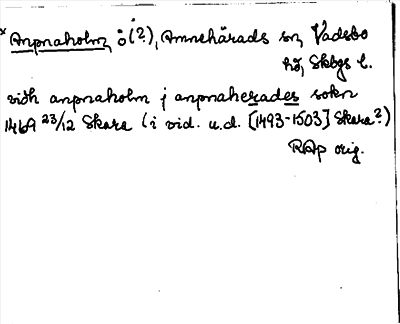 x Anpnaholm, ö (?), Amnehärads sn, Vadsbo
hd, Skbgs l.
vidh anpnaholm j anpnaherades sokn
1469 23/12 Skara (i vid. u.d. [1493-1503] Skara?)
RAp orig.